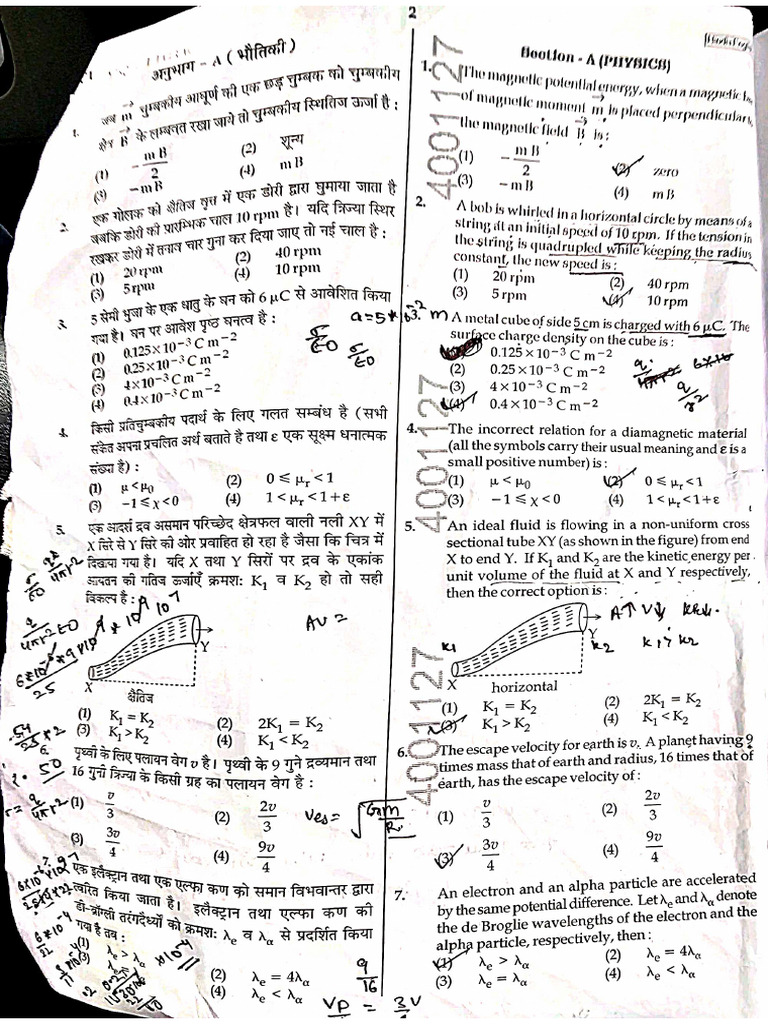 2
अनुभाग - A ( भौतिकी )
1. जब m चुम्बकीय आघूर्ण की एक छड़ चुम्बक को चुम्बकीय
क्षेत्र B के लम्बवत रखा जाये तो चुम्बकीय स्थितिज ऊर्जा है :
(1) - mB/2 (2) शून्य
(3) -mB (4) mB
2. एक गोलक को क्षैतिज वृत्त में एक डोरी द्वारा घुमाया जाता है
जबकि डोरी की प्रारम्भिक चाल 10 rpm है। यदि त्रिज्या स्थिर
रखकर डोरी में तनाव चार गुना कर दिया जाए तो नई चाल है :
(1) 20 rpm (2) 40 rpm
(3) 5 rpm (4) 10 rpm
3. 5 सेमी भुजा के एक धातु के घन को 6 μC से आवेशित किया
गया है। घन पर आवेश पृष्ठ घनत्व है :
(1) 0.125×10−3 C m−2
(2) 0.25×10−3 C m−2
(3) 4×10−3 C m−2
(4) 0.4×10−3 C m−2
4. किसी प्रतिचुम्बकीय पदार्थ के लिए गलत सम्बंध है (सभी
संकेत अपना प्रचलित अर्थ बताते है तथा ε एक सूक्ष्म धनात्मक
संख्या है) :
(1) μ < μ0 (2) 0 ⩽ μr < 1
(3) −1 ⩽ χ < 0 (4) 1 < μr < 1+ε
5. एक आदर्श द्रव असमान परिच्छेद क्षेत्रफल वाली नली XY में
X सिरे से Y सिरे की ओर प्रवाहित हो रहा है जैसा कि चित्र में
दिखाया गया है। यदि X तथा Y सिरों पर द्रव के एकांक
आयतन की गतिज ऊर्जाएँ क्रमशः K1 व K2 हो तो सही
विकल्प है :
Y
X
क्षैतिज
(1) K1 = K2 (2) 2K1 = K2
(3) K1 > K2 (4) K1 < K2
6. पृथ्वी के लिए पलायन वेग v है। पृथ्वी के 9 गुने द्रव्यमान तथा
16 गुनी त्रिज्या के किसी ग्रह का पलायन वेग है :
(1) v/3 (2) 2v/3
(3) 3v/4 (4) 9v/4
7. एक इलैक्ट्रान तथा एक एल्फा कण को समान विभवान्तर द्वारा
त्वरित किया जाता है। इलैक्ट्रान तथा एल्फा कण की
डी-ब्रॉग्ली तरंगदैर्ध्यों को क्रमशः λe व λα से प्रदर्शित किया
गया है तब :
(1) λe > λα (2) λe = 4λα
(3) λe = λα (4) λe < λα
Section - A (PHYSICS)
1. The magnetic potential energy, when a magnetic
of magnetic moment m is placed perpendicular
the magnetic field B is :
(1) - mB/2 (2) zero
(3) -mB (4) mB
2. A bob is whirled in a horizontal circle by means of a
string at an initial speed of 10 rpm. If the tension in
the string is quadrupled while keeping the radius
constant, the new speed is :
(1) 20 rpm (2) 40 rpm
(3) 5 rpm (4) 10 rpm
3. A metal cube of side 5 cm is charged with 6 μC. The
surface charge density on the cube is :
0.125×10−3 C m−2
(2) 0.25×10−3 C m−2
(3) 4×10−3 C m−2
(4) 0.4×10−3 C m−2
4. The incorrect relation for a diamagnetic material
(all the symbols carry their usual meaning and ε is a
small positive number) is :
(1) μ < μ0 (2) 0 ⩽ μr < 1
(3) −1 ⩽ χ < 0 (4) 1 < μr < 1+ε
5. An ideal fluid is flowing in a non-uniform cross
sectional tube XY (as shown in the figure) from end
X to end Y. If K1 and K2 are the kinetic energy per
unit volume of the fluid at X and Y respectively,
then the correct option is :
Y
X
horizontal
(1) K1 = K2 (2) 2K1 = K2
(3) K1 > K2 (4) K1 < K2
6. The escape velocity for earth is v. A planet having 9
times mass that of earth and radius, 16 times that of
earth, has the escape velocity of :
(1) v/3 (2) 2v/3
(3) 3v/4 (4) 9v/4
7. An electron and an alpha particle are accelerated
by the same potential difference. Let λe and λα denote
the de Broglie wavelengths of the electron and the
alpha particle, respectively, then :
(1) λe > λα (2) λe = 4λα
(3) λe = λα (4) λe < λα
4001127
4001127
4001127
AV =
9/16